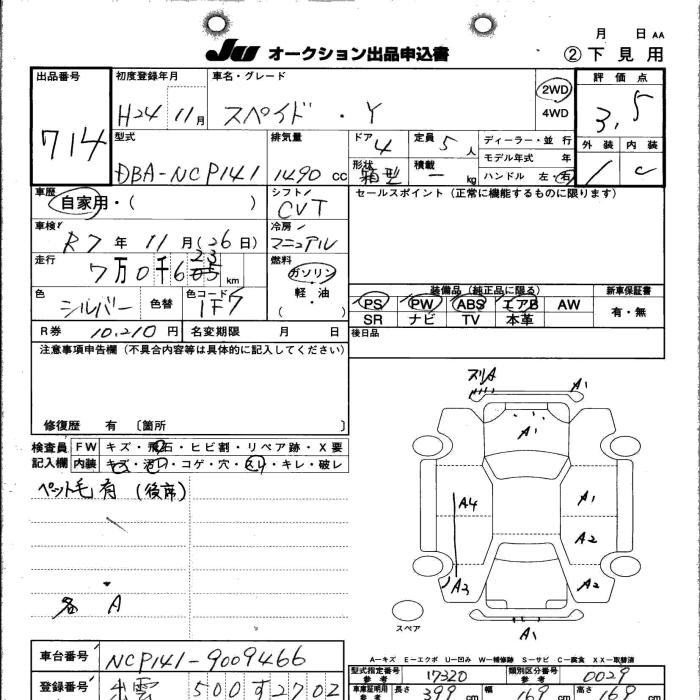 月 日 AA
JU オークション出品申込書 ②下見用
出品番号 714
初度登録年月 H24年 11月
車名・グレード スペイド・Y
2WD
4WD
評価点 3.5
外装 内装
C
型式 DBA-NCP141
排気量 1490 cc
ドア 4
定員 5人
ディーラー・並行
モデル年式 年
形状 箱型
積載 ー kg
ハンドル 左・右
車歴 自家用・( )
シフト CVT
セールスポイント (正常に機能するものに限ります)
車検 R7年 11月(26日)
冷房 マニュアル
走行 7万0千6 23 km
燃料 ガソリン
軽油
( )
色 シルバー
色替
色コード 1F7
装備品(純正品に限る)
PS PW ABS エアB AW
SR ナビ TV 本革
新車保証書
有・無
R券 10,210円
名変期限 月 日
後日品
注意事項申告欄(不具合内容等は具体的に記入してください)
修復歴 有 〔箇所 〕
検査員記入欄
FW キズ・飛石・ヒビ割・リペア跡・X要
内装 キズ・汚レ・コゲ・穴・スレ・キレ・破レ
ペット毛有(後席)
各 A
スリA
A1
A1
A4
A1
A2
A3
A2
A1
スペア
A-キズ E-エクボ U-凹み W-補修跡 S-サビ C-腐食 XX-取替済
車台番号 NCP141-9009466
登録番号 出雲 500す2702
型式指定番号 参考 17320
類別区分番号 参考 0029
車車証明用 参考 長さ 399 cm 幅 169 cm 高さ 169 cm